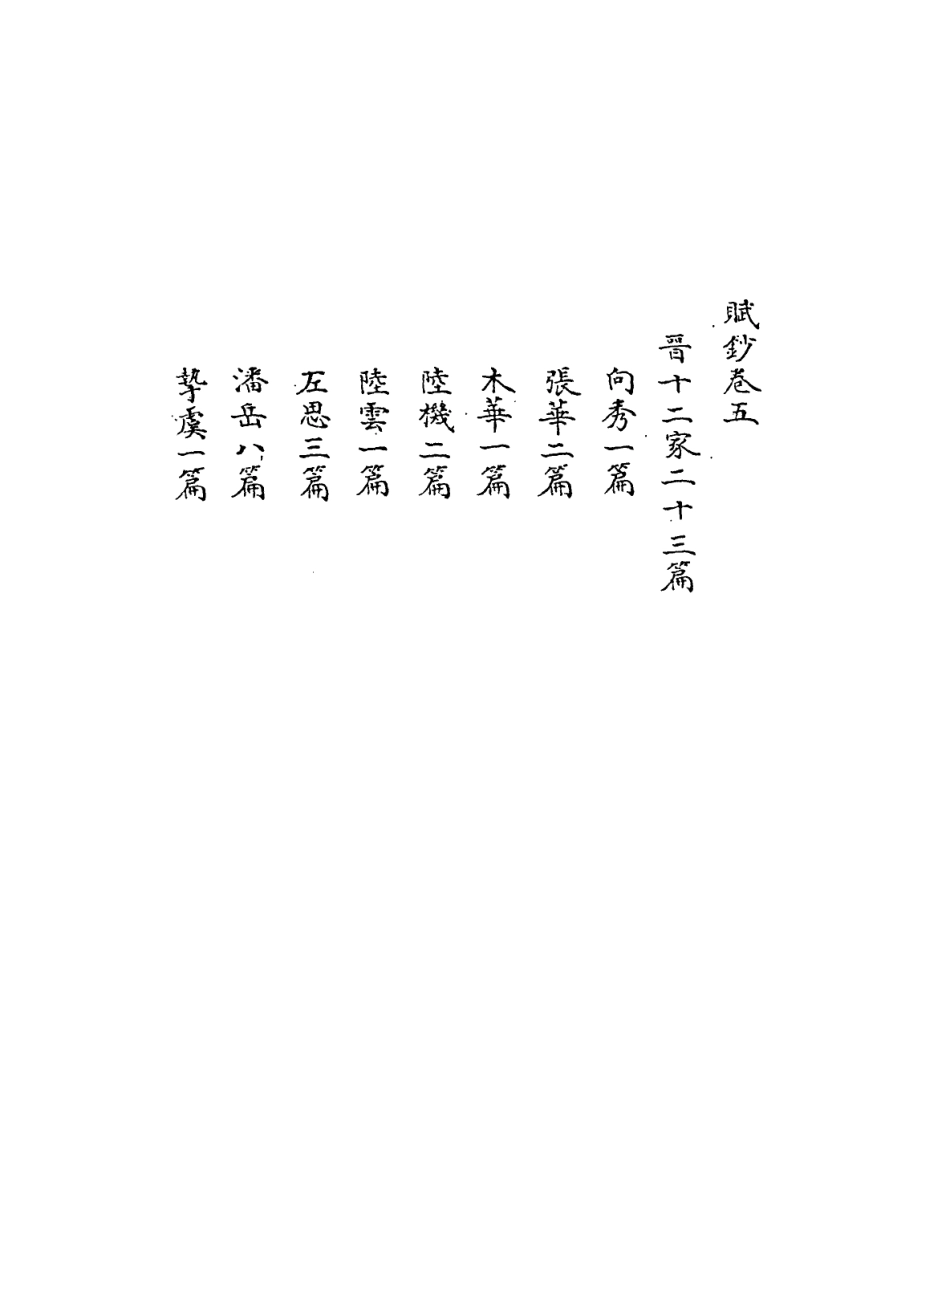 賦鈔卷五
晋十二家二十三篇
向秀一篇
張華二篇
木華一篇
陸機二篇
陸雲一篇
左思三篇
潘岳八篇
摯虞一篇